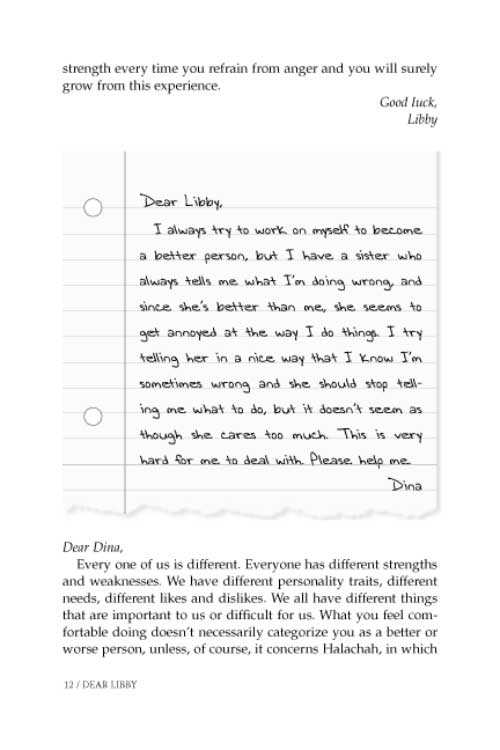 strength every time you refrain from anger and you will surely
grow from this experience.
Good luck,
Libby
Dear Libby,
I always try to work on myself to become
a better person, but I have a sister who
always tells me what I'm doing wrong, and
since she's better than me, she seems to
get annoyed at the way I do things. I try
telling her in a nice way that I know I'm
sometimes wrong and she should stop tell-
ing me what to do, but it doesn't seem as
though she cares too much. This is very
hard for me to deal with. Please help me.
Dina
Dear Dina,
Every one of us is different. Everyone has different strengths
and weaknesses. We have different personality traits, different
needs, different likes and dislikes. We all have different things
that are important to us or difficult for us. What you feel com-
fortable doing doesn't necessarily categorize you as a better or
worse person, unless, of course, it concerns Halachah, in which
12 / DEAR LIBBY